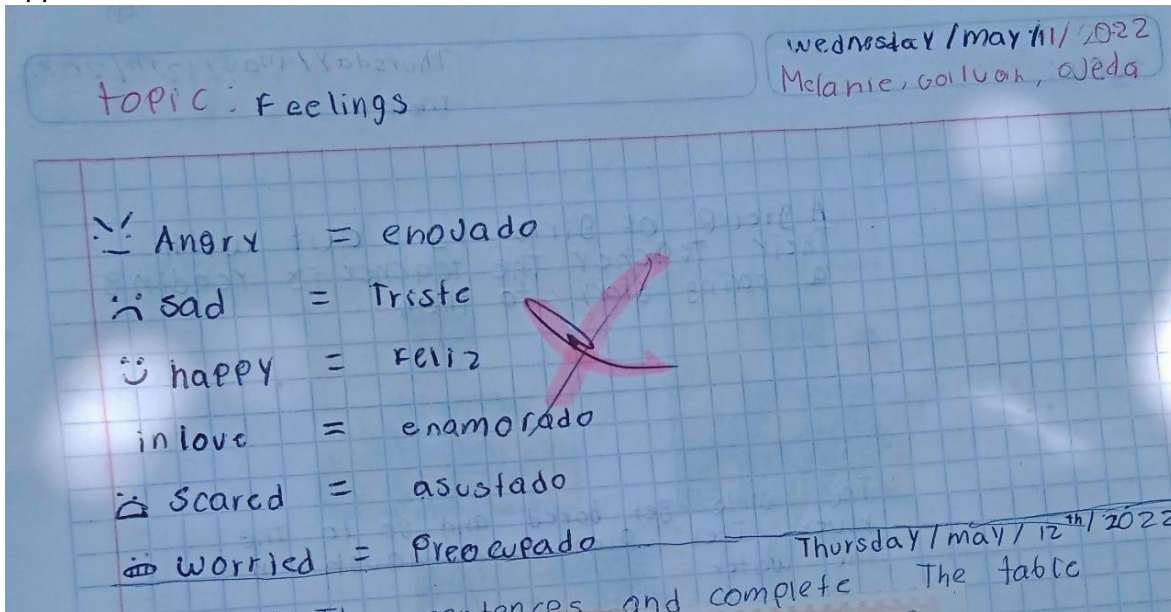 Wednesday / may / 11 / 2022
Melanie,
topic: Feelings
Angry = enojado
sad = Triste
happy = Feliz
in love = enamorado
scared = asustado
worried = Preocupado
Thursday / may / 12th / 2022
and complete The table